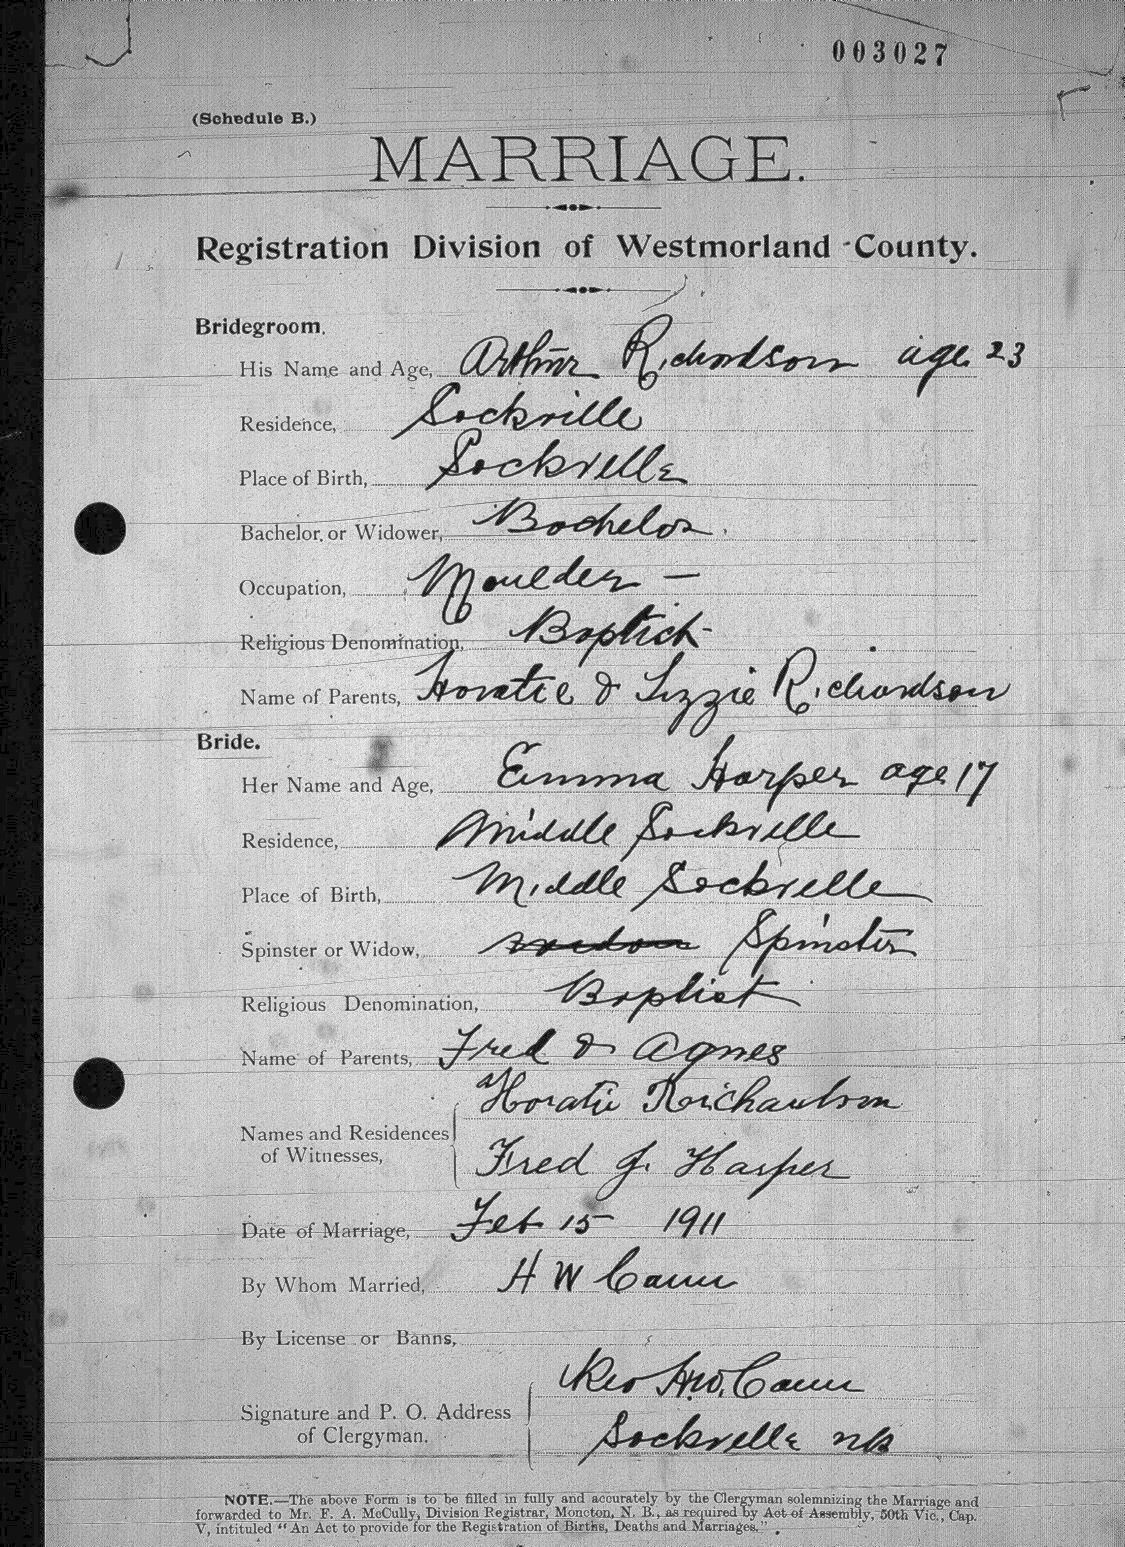 003027
(Schedule B.)
MARRIAGE.
Registration Division of Westmorland County.
Bridegroom.
His Name and Age, Arthur Richardson age 23
Residence, Sackville
Place of Birth, Sackville
Bachelor or Widower, Bachelor
Occupation, Moulder —
Religious Denomination, Baptist
Name of Parents, Horatie & Lizzie Richardson
Bride.
Her Name and Age, Emma Harper age 17
Residence, Middle Sackville
Place of Birth, Middle Sackville
Spinster or Widow, widow Spinster
Religious Denomination, Baptist
Name of Parents, Fred & Agnes
Horatie Richardson
Names and Residences
of Witnesses,
Fred J. Harper
Date of Marriage, Feb 15 1911
By Whom Married, H W Cann
By License or Banns,
Rev H.W. Cann
Signature and P. O. Address
of Clergyman.
Sackville NB
NOTE.—The above Form is to be filled in fully and accurately by the Clergyman solemnizing the Marriage and
forwarded to Mr. F. A. McCully, Division Registrar, Moncton, N. B., as required by Act of Assembly, 50th Vic., Cap.
V, intituled "An Act to provide for the Registration of Births, Deaths and Marriages."